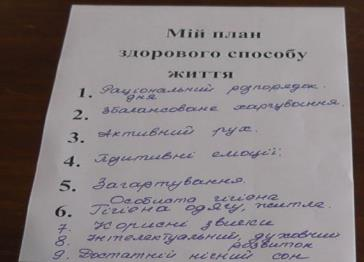 Мій план
здорового способу
життя
1. Раціональний розпорядок
дня
2. Збалансоване харчування.
3. Активний рух.
4. Позитивні емоції.
5. Загартування.
Особиста гігієна
6. Гігієна одягу, житла.
7. Корисні звички
8. Інтелектуальний, духовний
розвиток
9. Достатній нічний сон